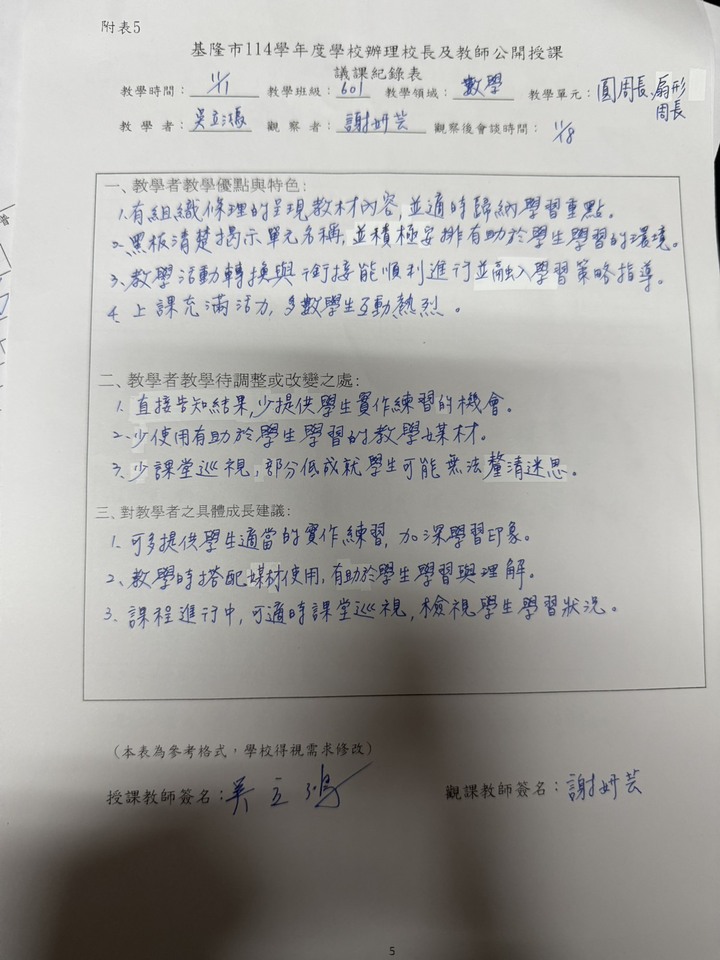 附表5
基隆市114學年度學校辦理校長及教師公開授課
議課紀錄表
教學時間：11/11 教學班級：601 教學領域：數學 教學單元：圓周長、扇形周長
教學者：吳立鴻 觀察者：謝妍芸 觀察後會談時間：11/18
一、教學者教學優點與特色：
1.有組織條理的呈現教材內容，並適時歸納學習重點。
2.黑板清楚揭示單元名稱，並積極安排有助於學生學習的環境。
3.教學活動轉換與銜接能順利進行並融入學習策略指導。
4.上課充滿活力，多數學生互動熱烈。
二、教學者教學待調整或改變之處：
1.直接告知結果，少提供學生實作練習的機會。
2.少使用有助於學生學習的教學媒材。
3.少課堂巡視，部分低成就學生可能無法釐清迷思。
三、對教學者之具體成長建議：
1.可多提供學生適當的實作練習，加深學習印象。
2.教學時搭配媒材使用，有助於學生學習與理解。
3.課程進行中，可適時課堂巡視，檢視學生學習狀況。
（本表為參考格式，學校得視需求修改）
授課教師簽名：吳立鴻 觀課教師簽名：謝妍芸
5